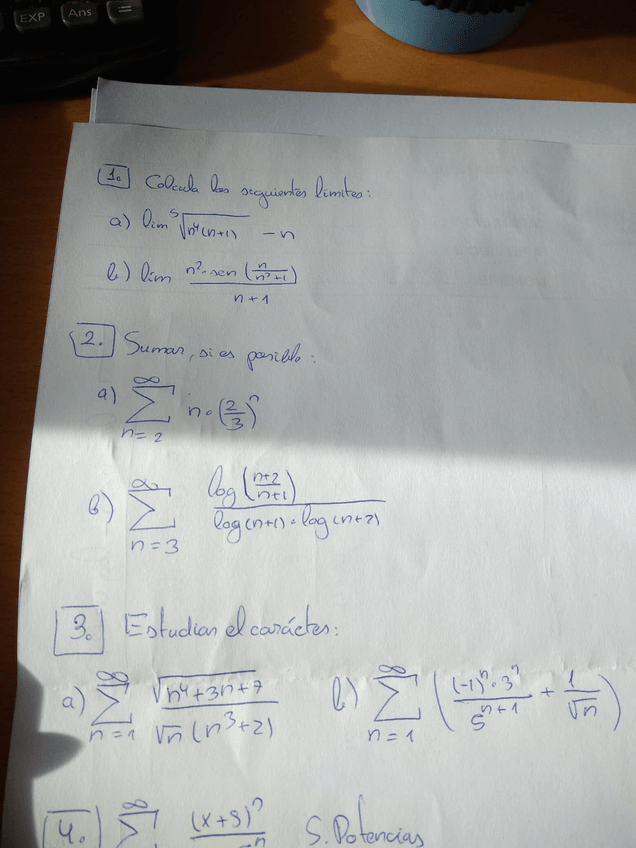 EXP Ans =
1. Calcula los siguientes límites:
a) lim ⁵√(n⁴(n+1)) - n
b) lim (n²·sen(n/(n³+1)))/(n+1)
2. Sumar, si es posible:
a) ∑_{n=2}^{∞} n·(2/3)ⁿ
b) ∑_{n=3}^{∞} log((n+2)/(n+1))/(log(n+1)·log(n+2))
3. Estudiar el carácter:
a) ∑_{n=1}^{∞} √(n⁴+3n+7)/(√n(n³+2)) b) ∑_{n=1}^{∞} ((-1)ⁿ·3ⁿ/5ⁿ⁺¹ + 1/√n)
4. ∑^{∞} (x+5)ⁿ S. Potencias